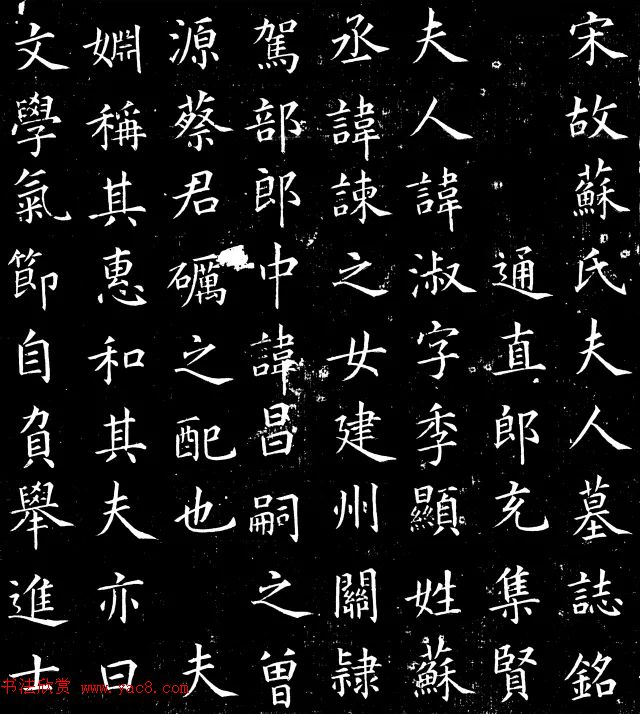 宋故蘇氏夫人墓誌銘
通直郎充集賢
夫人諱淑字季顯姓蘇
丞諱諫之女建州關隷
駕部郎中諱昌嗣之曾
源蔡君礪之配也 夫
婣稱其惠和其夫亦曰
文學氣節自負舉進士
书法欣赏 www.yac8.com